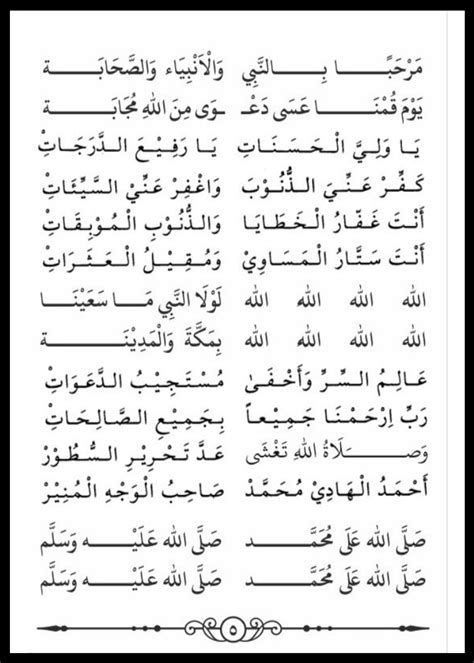 مَرْحَبًا بِالنَّبِي وَالْأَنْبِيَاء وَالصَّحَابَة
يَوْمَ قُمْنَا عَسَى دَعْوَى مِنَ اللهِ مُجَابَة
يَا وَلِيَّ الْحَسَنَاتِ يَا رَفِيْعَ الدَّرَجَاتِ
كَفِّرْ عَنِّيَ الذُّنُوْبَ وَاغْفِرْ عَنِّيْ السَّيِّئَاتِ
أَنْتَ غَفَّارُ الْخَطَايَا وَالذُّنُوْبِ الْمُوْبِقَاتِ
أَنْتَ سَتَّارُ الْمَسَاوِيْ وَمُقِيْلُ الْعَثَرَاتِ
الله الله الله الله لَوْلَا النَّبِي مَا سَعَيْنَا
الله الله الله الله بِمَكَّةَ وَالْمَدِيْنَة
عَالِمُ السِّرِّ وَأَخْفَىٰ مُسْتَجِيْبُ الدَّعَوَاتِ
رَبِّ اِرْحَمْنَا جَمِيْعاً بِجَمِيْعِ الصَّالِحَاتِ
وَصَلَاةُ اللهِ تَغْشَى عَدَّ تَحْرِيْرِ السُّطُوْرْ
أَحْمَدُ الْهَادِيْ مُحَمَّدْ صَاحِبُ الْوَجْهِ الْمُنِيْرْ
صَلَّى الله عَلَى مُحَمَّد صَلَّى الله عَلَيْه وَسَلَّم
صَلَّى الله عَلَى مُحَمَّد صَلَّى الله عَلَيْه وَسَلَّم
٥